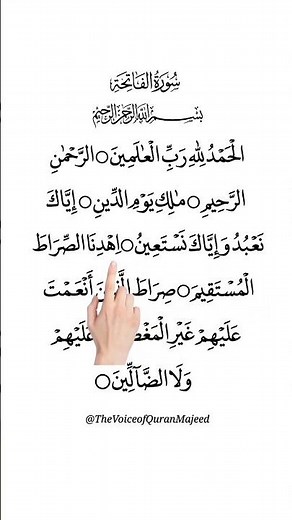 سُورَةُ الْفَاتِحَةِ
بِسْمِ اللهِ الرَّحْمٰنِ الرَّحِيْمِ
اَلْحَمْدُ لِلّٰهِ رَبِّ الْعٰلَمِيْنَ○ الرَّحْمٰنِ
الرَّحِيْمِ○ مٰلِكِ يَوْمِ الدِّيْنِ○ إِيَّاكَ
نَعْبُدُ وَإِيَّاكَ نَسْتَعِيْنُ○ اِهْدِنَا الصِّرَاطَ
الْمُسْتَقِيْمَ○ صِرَاطَ أَنْعَمْتَ
عَلَيْهِمْ غَيْرِ عَلَيْهِمْ
وَلَا الضَّآلِّيْنَ○
@TheVoiceofQuranMajeed